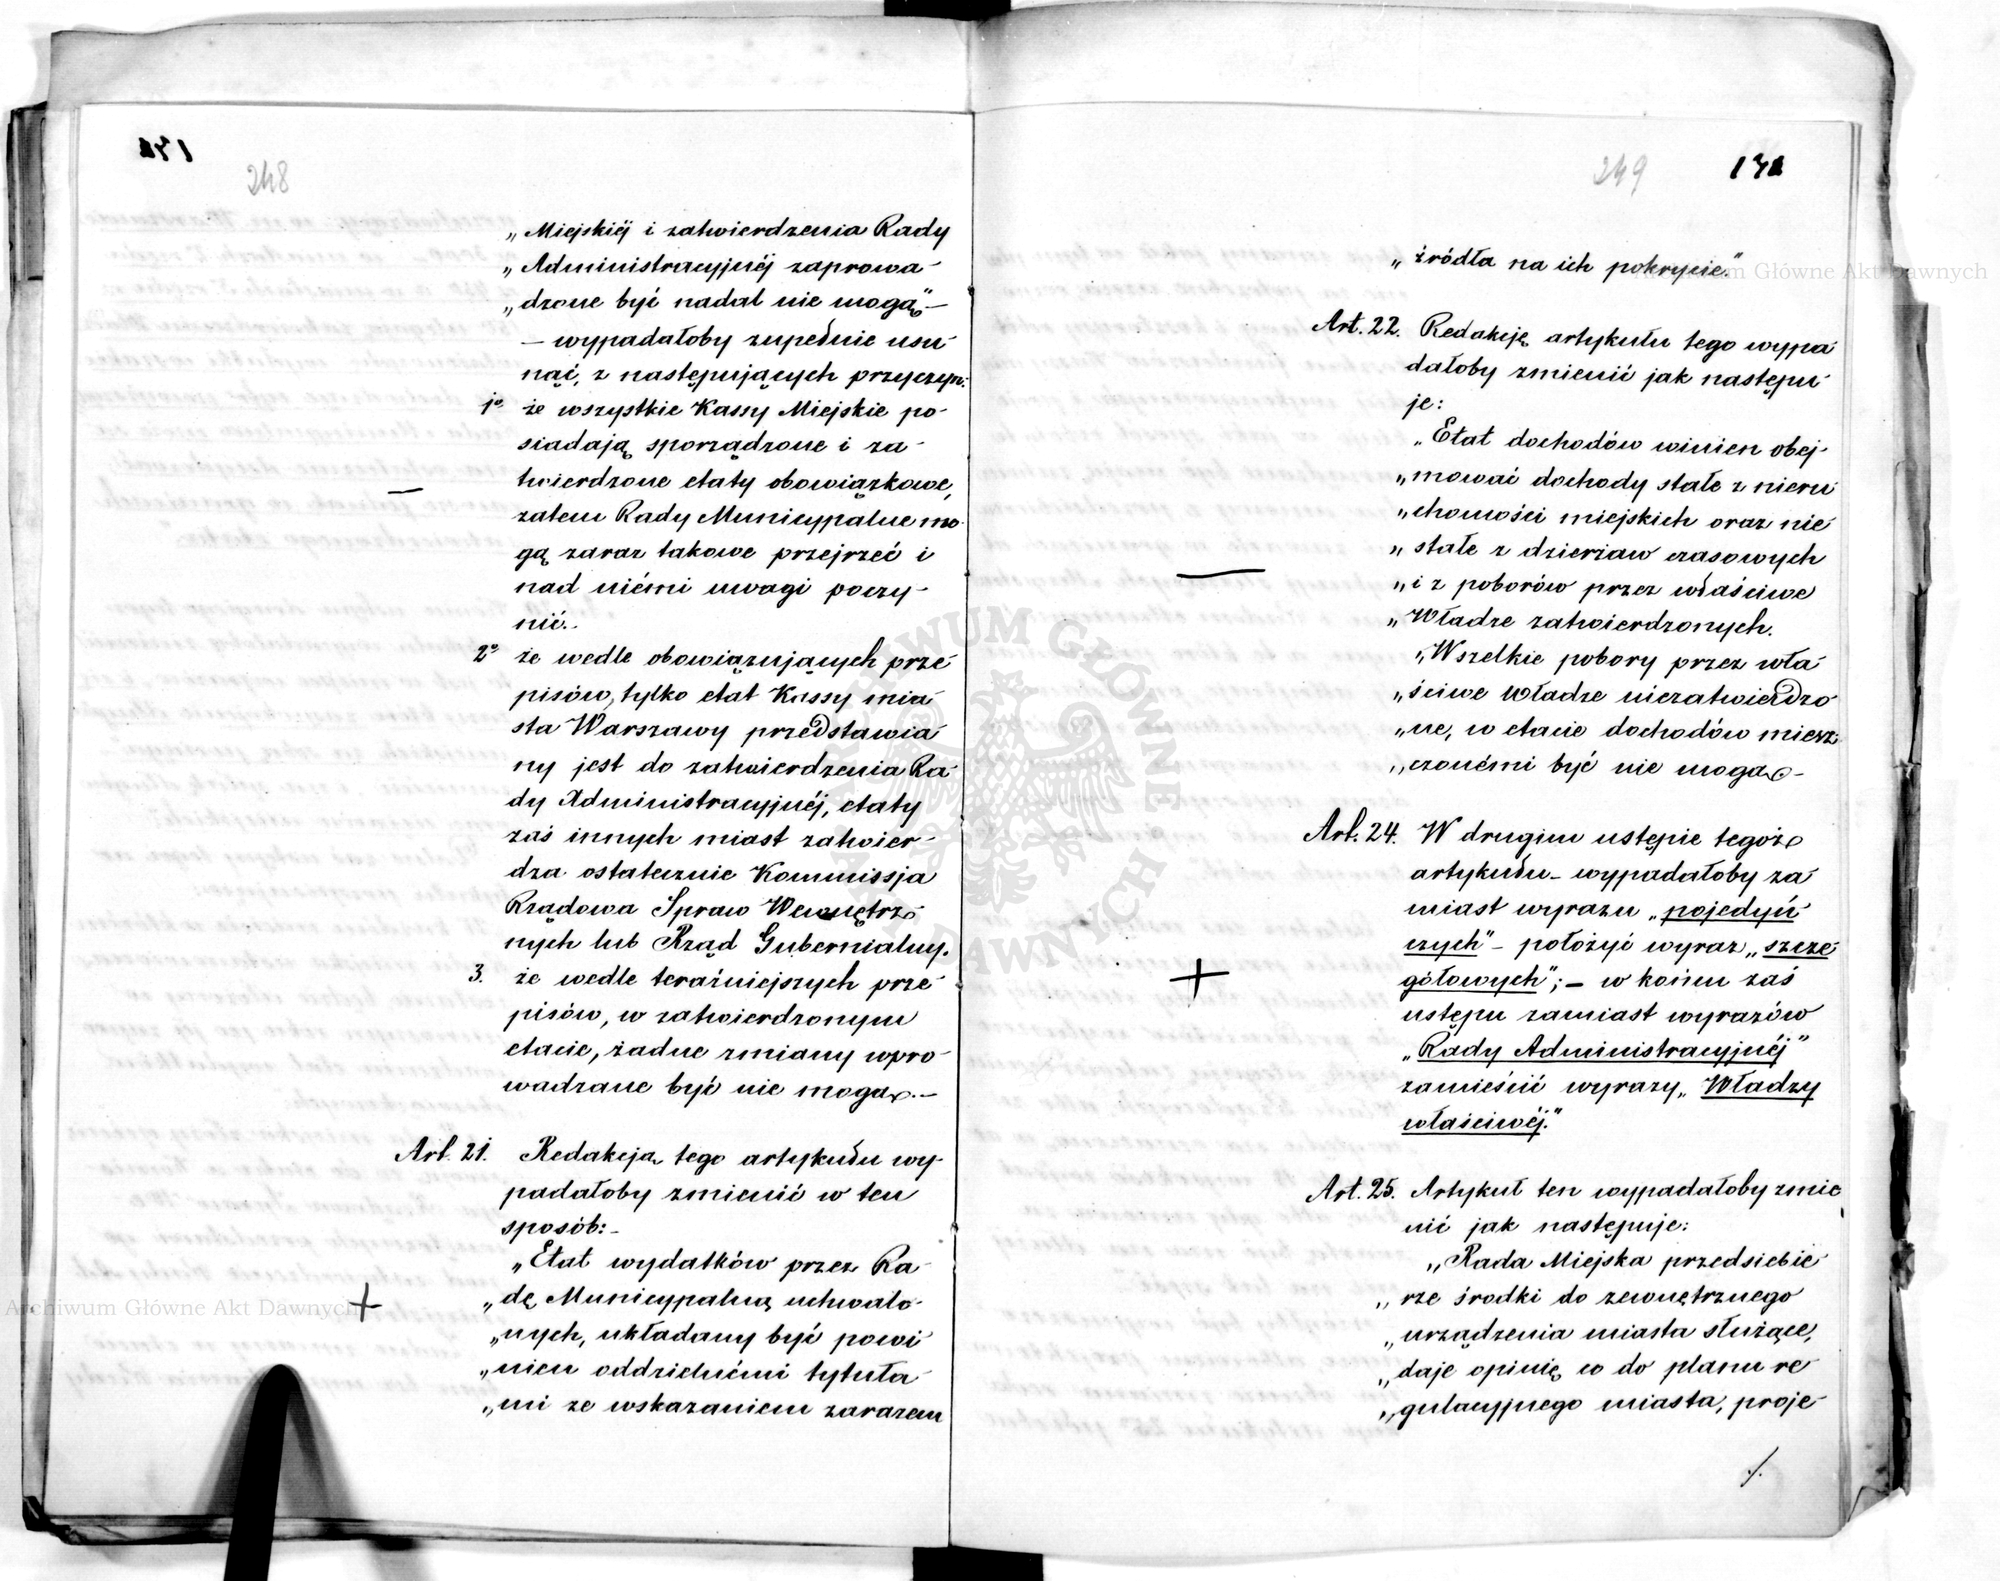 248
„Miejskiéj i zatwierdzenia Rady
„Administracyjnéj zaprowa-
„dzone być nadal nie mogą”—
— wypadałoby zupełnie usu-
nąć, z następujących przyczyn:
1o że wszystkie Kassy Miejskie po-
siadają sporządzone i za-
twierdzone etaty obowiązkowe,
zatem Rady Municypalne mo-
gą zaraz takowe przejrzeć i
nad niémi uwagi poczy-
nić.-
2o że wedle obowiązujących prze-
pisów, tylko etat Kassy mia-
sta Warszawy przedstawia-
ny jest do zatwierdzenia Ra-
dy Administracyjnéj, etaty
zaś innych miast zatwier-
dza ostatecznie Kommissja
Rządowa Spraw Wewnętrz-
nych lub Rząd Gubernialny.
3. że wedle teraźniejszych prze-
pisów, w zatwierdzonym
etacie, żadne zmiany wpro-
wadzane być nie mogą.—
Art. 21. Redakcją tego artykułu wy-
padałoby zmienić w ten
sposób:-
„Etat wydatków przez Ra-
„dę Municypalną uchwalo-
„nych, układany być powi-
„nien oddzielnémi tytuła-
„mi ze wskazaniem zarazem
249 131
„źródła na ich pokrycie.”
Art. 22. Redakcję artykułu tego wypa-
dałoby zmienić jak następu-
je:
„Etat dochodów winien obej-
„mować dochody stałe z nieru-
„chomości miejskich oraz nie-
„stałe z dzierżaw czasowych
„i z poborów przez właściwe
„Władze zatwierdzonych.
„Wszelkie pobory przez wła-
„ściwe Władze niezatwierdzo-
„ne, w etacie dochodów miesz-
„czonémi być nie mogą-
Art. 24. W drugim ustępie tegoż
artykułu- wypadałoby za-
miast wyrazu „pojedyń-
czych”- położyć wyraz „szcze-
gółowych”;- w końcu zaś
ustępu zamiast wyrazów
„Rady Administracyjnéj”
zamieścić wyrazy „Władzy
właściwéj.”
Art. 25. Artykuł ten wypadałoby zmie-
nić jak następuje:
„Rada Miejska przedsiebie-
„rze środki do zewnętrznego
„urządzenia miasta służące,
„daje opinię co do planu re-
„gulacyjnego miasta, proje-
./.
Archiwum Główne Akt Dawnych
Archiwum Główne Akt Dawnych
ARCHIWUM GŁÓWNE AKT DAWNYCH